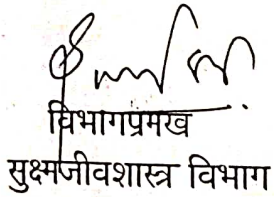 विभागप्रमख
सुक्ष्मजीवशास्त्र विभाग